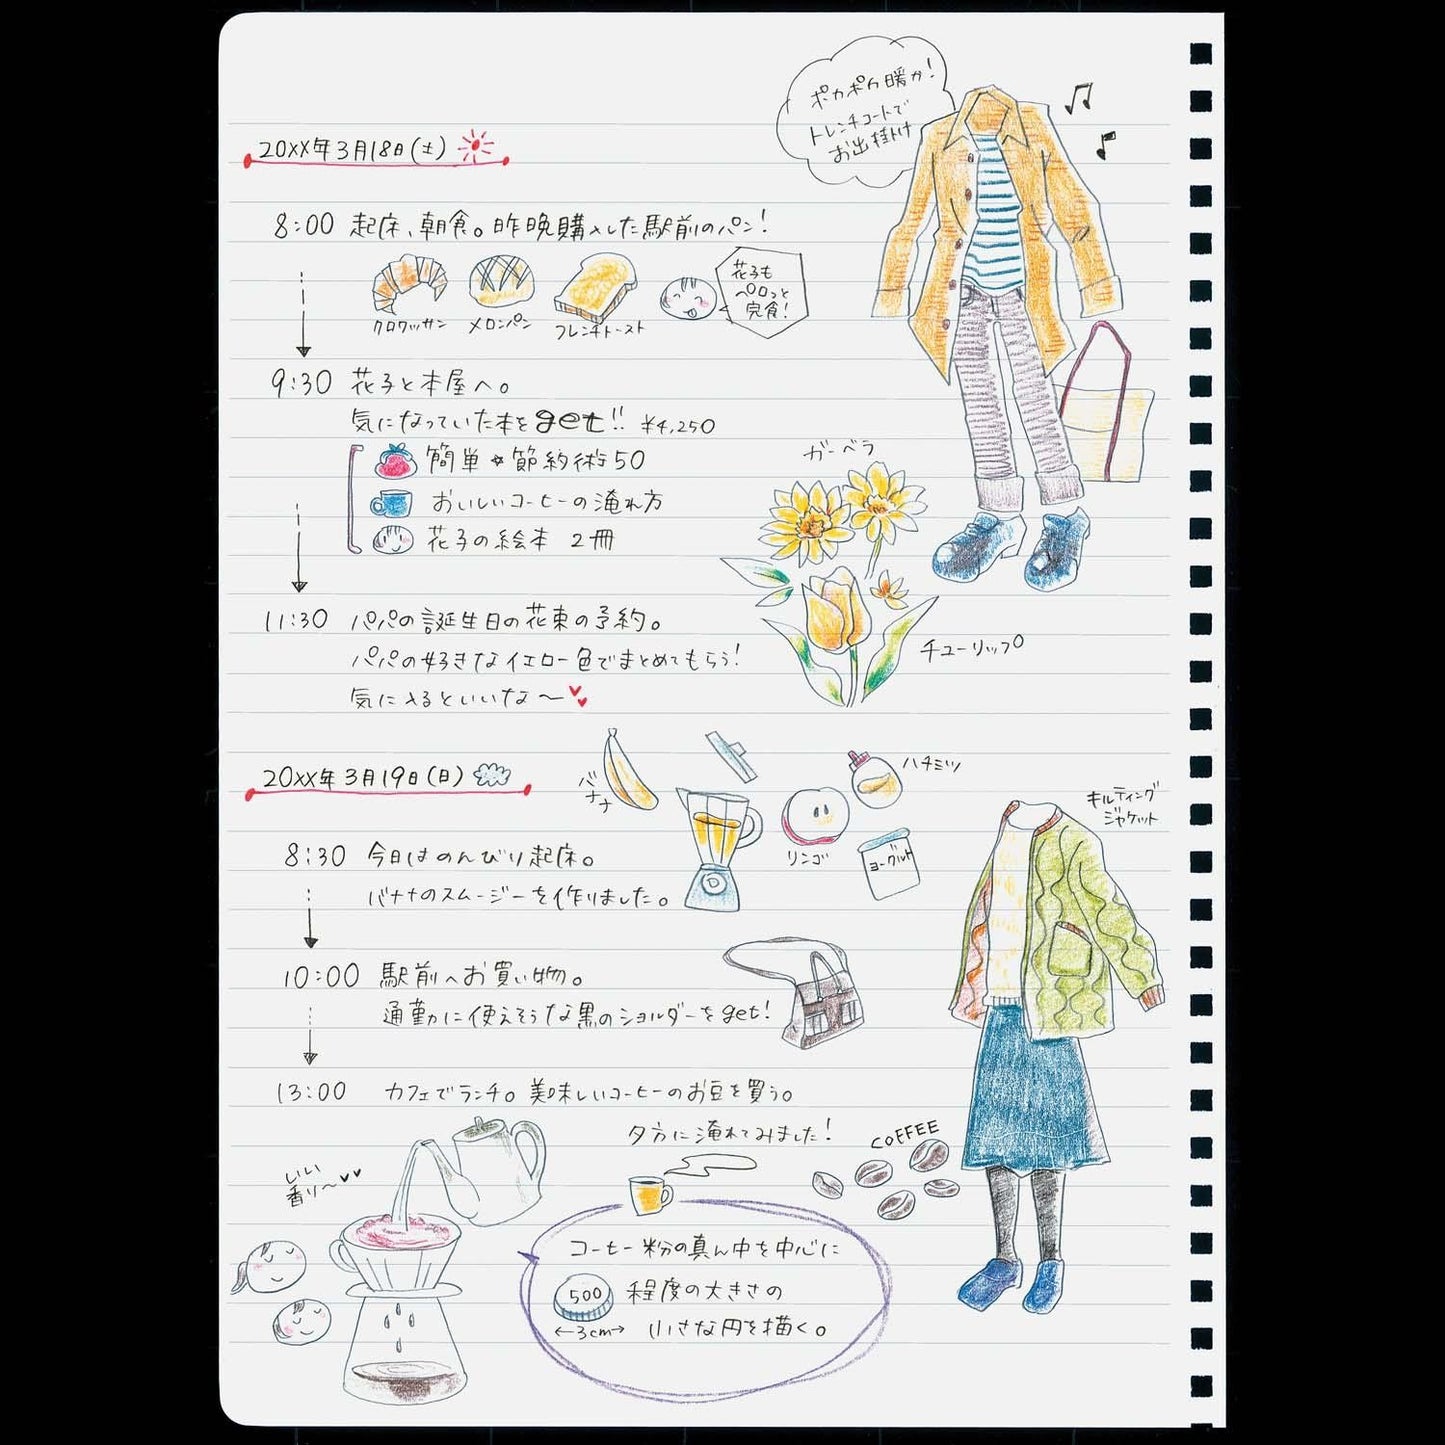 ポカポカ暖か!
トレンチコートで
お出掛け
20XX年3月18日(土)
8:00 起床、朝食。昨晩購入した駅前のパン!
クロワッサン
メロンパン
フレンチトースト
花子も
ペロっと
完食!
9:30 花子と本屋へ。
気になっていた本をget!! ¥4,250
簡単☆節約術50
おいしいコーヒーの淹れ方
花子の絵本 2冊
ガーベラ
11:30 パパの誕生日の花束の予約。
パパの好きなイエロー色でまとめてもらう!
気に入るといいな〜
チューリップ
20XX年3月19日(日)
バナナ
ハチミツ
リンゴ
ヨーグルト
キルティング
ジャケット
8:30 今日はのんびり起床。
バナナのスムージーを作りました。
10:00 駅前へお買い物。
通勤に使えそうな黒のショルダーをget!
13:00 カフェでランチ。美味しいコーヒーのお豆を買う。
夕方に淹れてみました!
COFFEE
いい
香り〜
コーヒー粉の真ん中を中心に
500 程度の大きさの
←3cm→ 小さな円を描く。